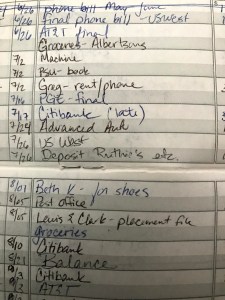 6/26 phone bill May/June
6/26 final phone bill - US West
6/26 AT&T final
Groceries - Albertsons
7/2 Machine
7/2 PSU - book
7/2 Greg - rent/phone
7/16 PGE - final
7/17 Citibank (late)
7/24 Advanced
7/26 US West
7/26 Deposit Ruthie's etc.
8/01 Beth K - /on shoes
8/05 Post office
8/05 Lewis & Clark - placement file
Groceries
8/10 Citibank
8/23 Balance
9/3 Citibank
9/3 AT&T